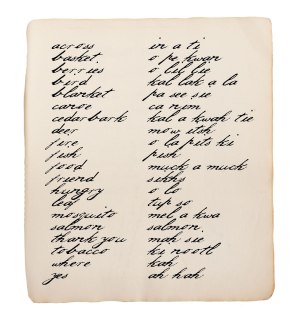 across in a ti
basket. o pe kwan
berries o lil lie
bird kal lak a la
blanket pa see sie
canoe ca nim
cedar bark kal a kwah tie
deer mow itsh
fire o la pits ki
fish pish
food muck a muck
friend sikhs
hungry o lo
leaf tup so
mosquito mel a kwa
salmon salmon.
thank you mah sie
tobacco ki nootl
where kah
yes ah hah